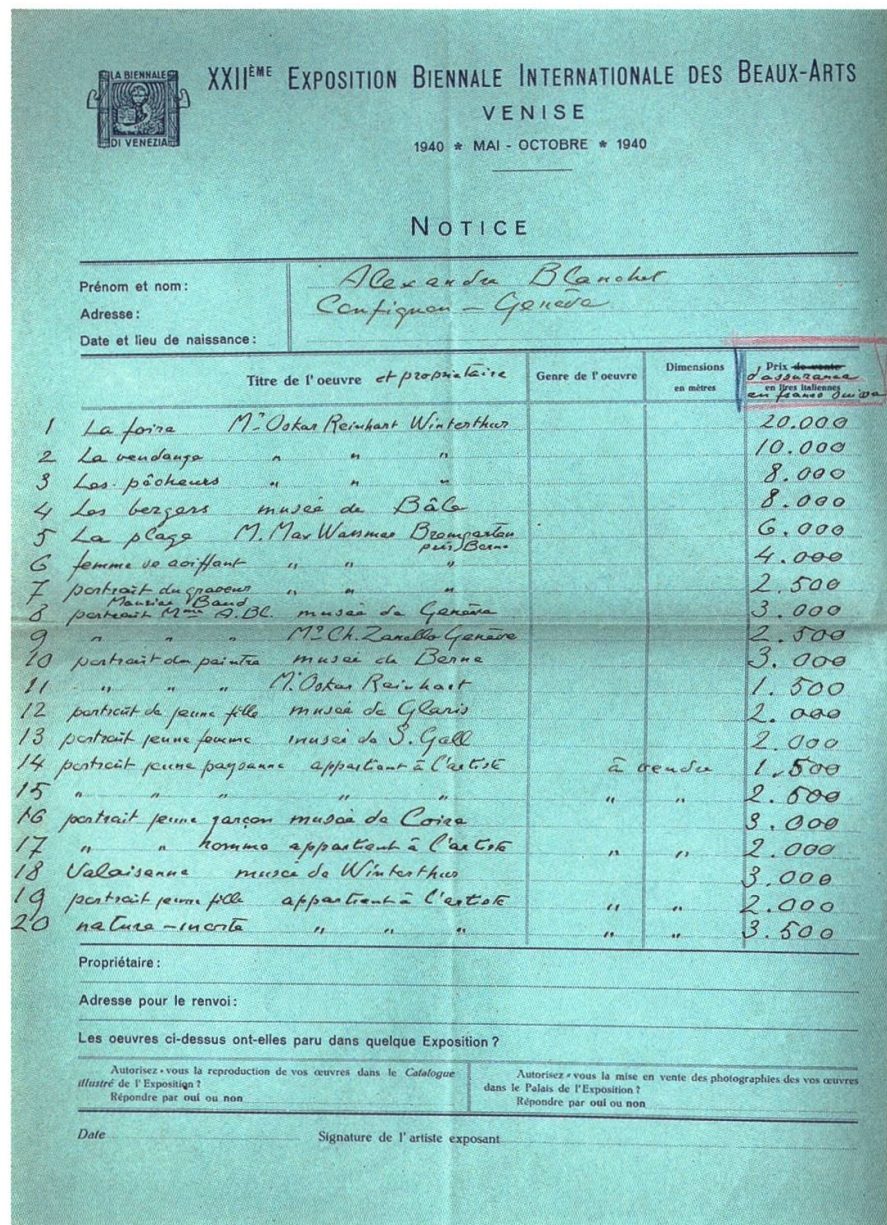 LA BIENNALE
DI VENEZIA
XXIIÈME EXPOSITION BIENNALE INTERNATIONALE DES BEAUX-ARTS
VENISE
1940 * MAI - OCTOBRE * 1940
NOTICE
Prénom et nom: Alexandre Blanchet
Adresse: Confignon - Genève
Date et lieu de naissance:
Titre de l'oeuvre et propriétaire Genre de l'oeuvre Dimensions en mètres Prix de vente d'assurance en lires italiennes en francs suisses
1 La foire Mr Oskar Reinhart Winterthur 20.000
2 La vendange " " " 10.000
3 Les pêcheurs " " " 8.000
4 Les bergers musée de Bâle 8.000
5 La plage M. Max Wassmer Bremgarten près Berne 6.000
6 femme se coiffant " " " 4.000
7 portrait du graveur Maurice Baud " " " 2.500
8 portrait Mme A.BL. musée de Genève 3.000
9 " " " Mr Ch. Zanello Genève 2.500
10 portrait du peintre musée de Berne 3.000
11 " " " Mr Oskar Reinhart 1.500
12 portrait de jeune fille musée de Glaris 2.000
13 portrait jeune femme musée de S. Gall 2.000
14 portrait jeune paysanne appartient à l'artiste à vendre 1.500
15 " " " " " " " 2.500
16 portrait jeune garçon musée de Coire 3.000
17 " " homme appartient à l'artiste " " 2.000
18 Valaisanne musée de Winterthur 3.000
19 portrait jeune fille appartient à l'artiste " " 2.000
20 nature-morte " " " " " 3.500
Propriétaire:
Adresse pour le renvoi:
Les oeuvres ci-dessus ont-elles paru dans quelque Exposition?
Autorisez-vous la reproduction de vos œuvres dans le Catalogue
illustré de l'Exposition?
Répondre par oui ou non
Autorisez-vous la mise en vente des photographies des vos œuvres
dans le Palais de l'Exposition?
Répondre par oui ou non
Date Signature de l'artiste exposant